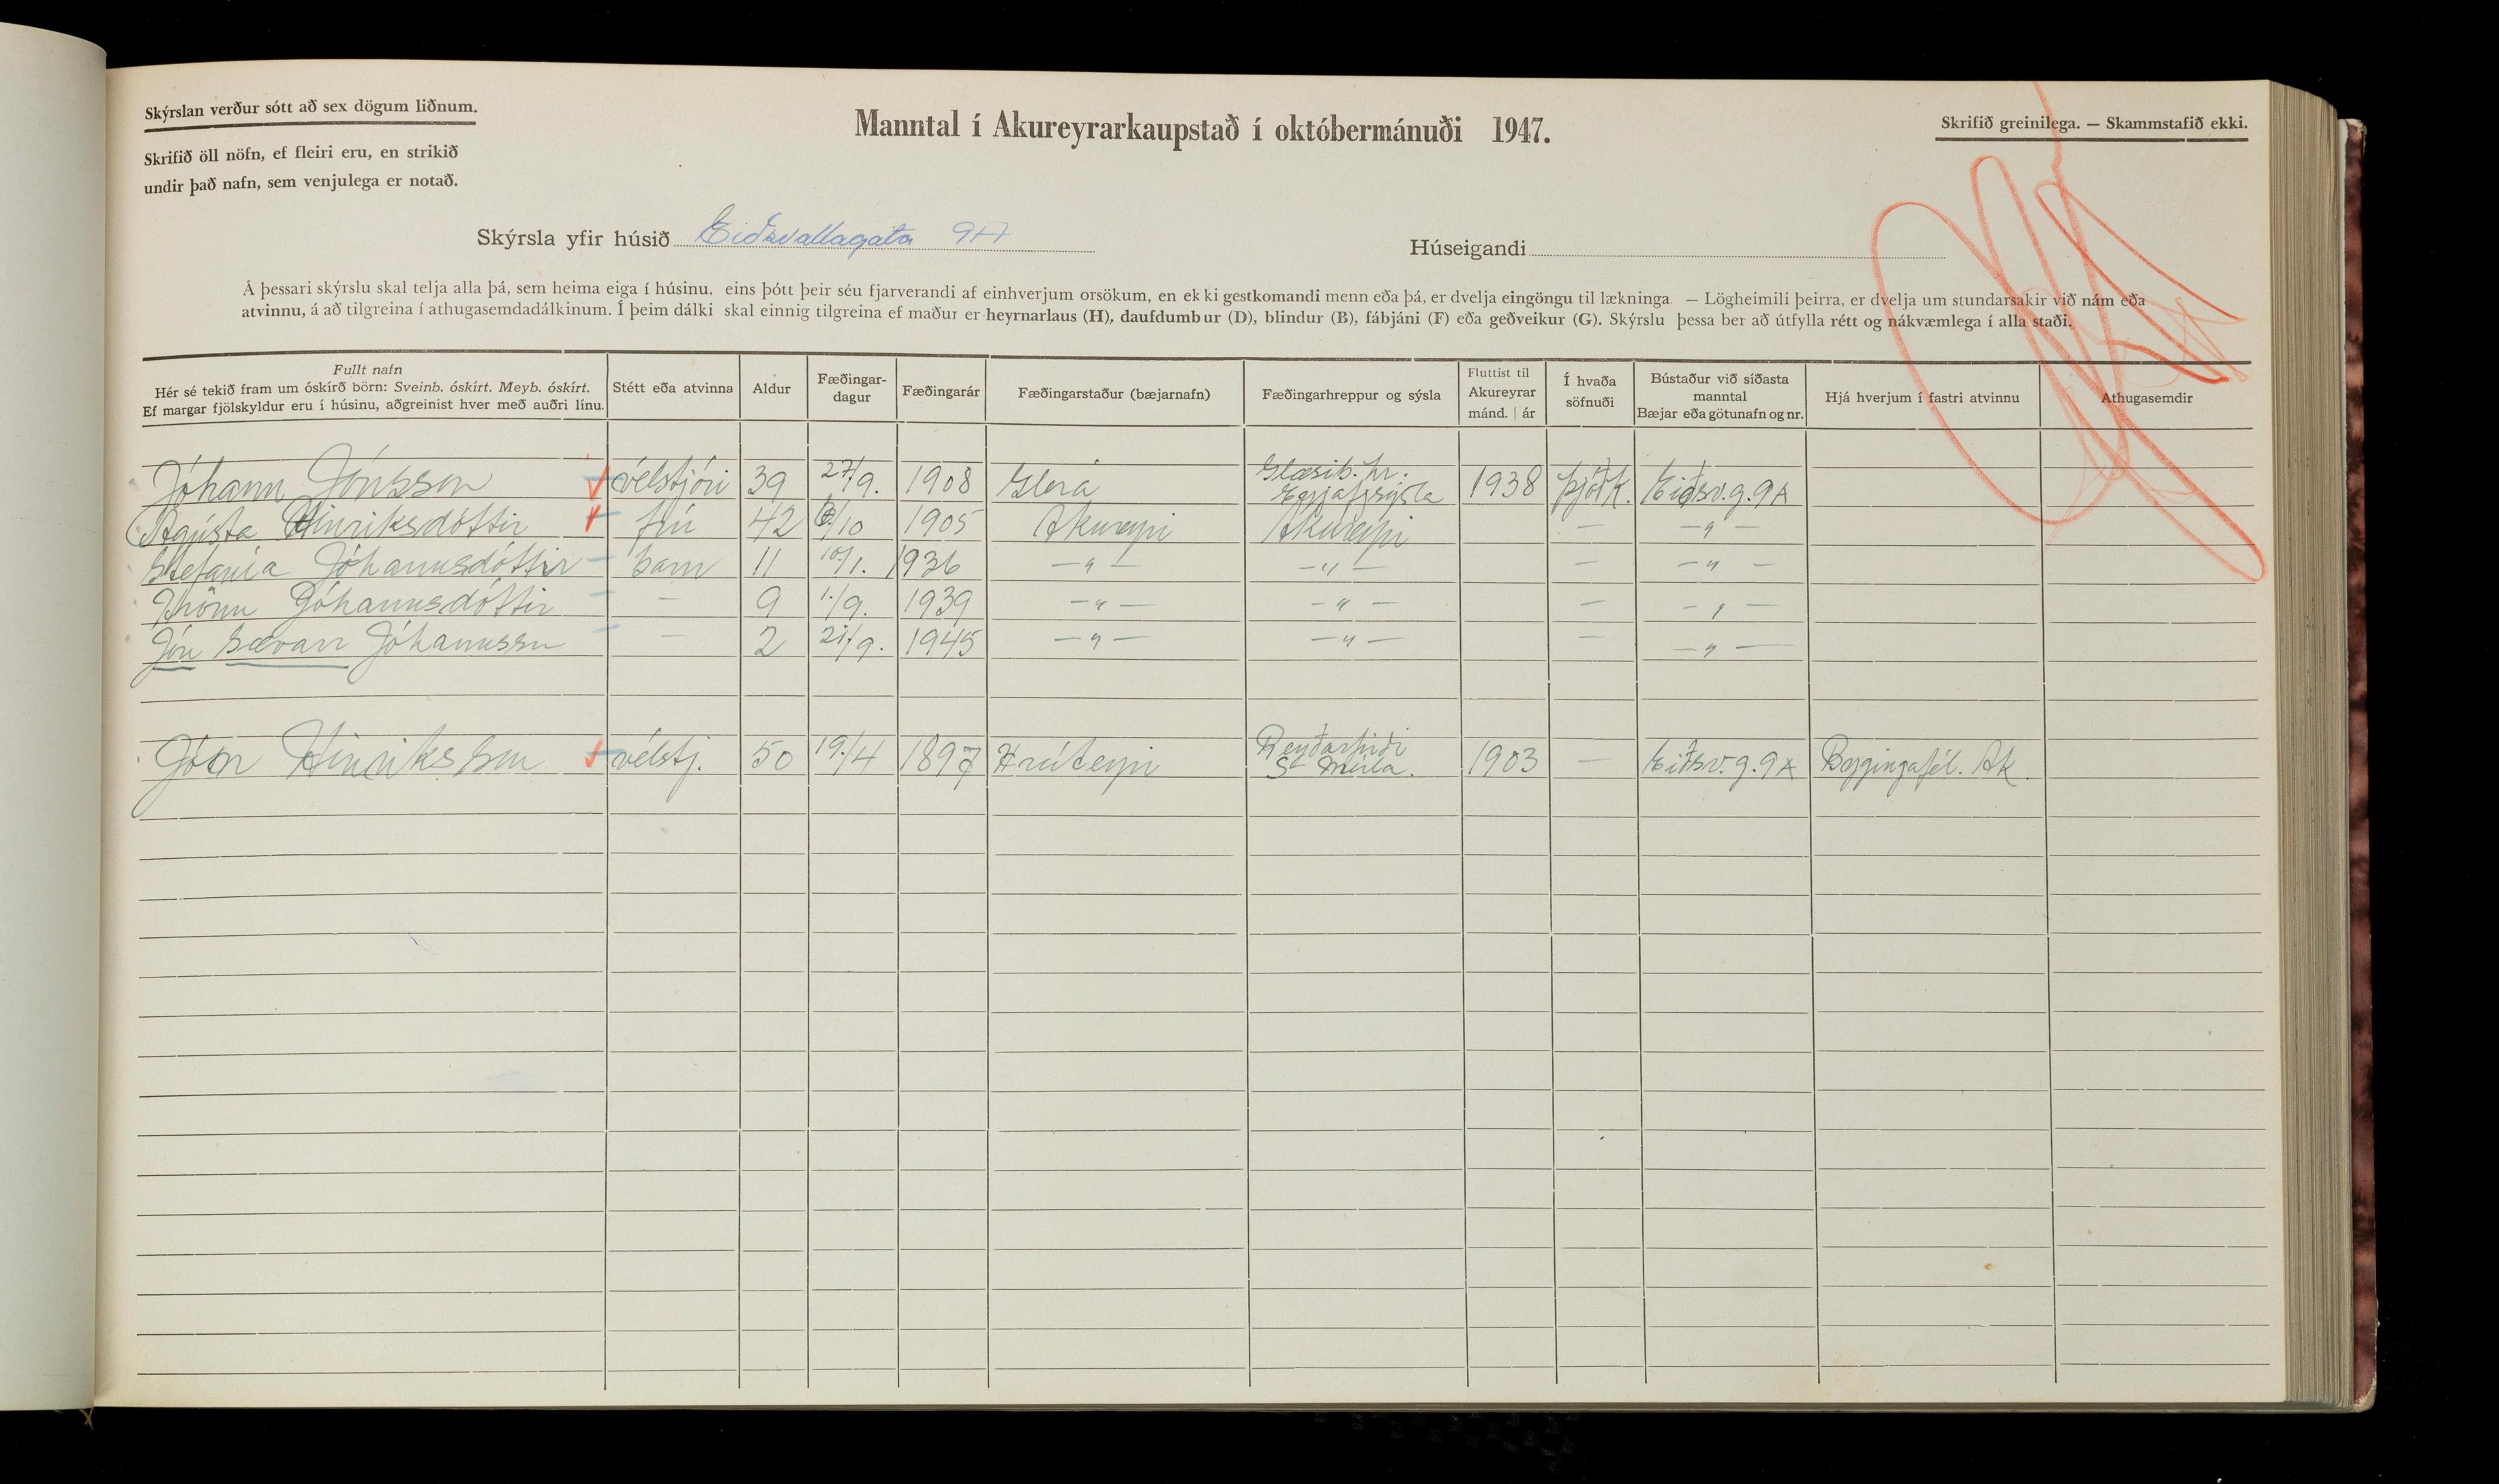 Skýrslan verður sótt að sex dögum liðnum.
Skrifið öll nöfn, ef fleiri eru, en strikið
undir það nafn, sem venjulega er notað.
Manntal í Akureyrarkaupstað í októbermánuði 1947.
Skrifið greinilega. — Skammstafið ekki.
Skýrsla yfir húsið Eiðsvallagata 9A
Húseigandi
Á þessari skýrslu skal telja alla þá, sem heima eiga í húsinu, eins þótt þeir séu fjarverandi af einhverjum orsökum, en ekki gestkomandi menn eða þá, er dvelja eingöngu til lækninga. — Lögheimili þeirra, er dvelja um stundarsakir við nám eða
atvinnu, á að tilgreina í athugasemdadálkinum. Í þeim dálki skal einnig tilgreina ef maður er heyrnarlaus (H), daufdumbur (D), blindur (B), fábjáni (F) eða geðveikur (G). Skýrslu þessa ber að útfylla rétt og nákvæmlega í alla staði.
Fullt nafn
Hér sé tekið fram um óskírð börn: Sveinb. óskírt. Meyb. óskírt.
Ef margar fjölskyldur eru í húsinu, aðgreinist hver með auðri línu.
Stétt eða atvinna
Aldur
Fæðingar-
dagur
Fæðingarár
Fæðingarstaður (bæjarnafn)
Fæðingarhreppur og sýsla
Fluttist til
Akureyrar
mánd. | ár
Í hvaða
söfnuði
Bústaður við síðasta
manntal
Bæjar eða götunafn og nr.
Hjá hverjum í fastri atvinnu
Athugasemdir
Jóhann Jónsson vélstjóri 39 27/9. 1908 Glerá Glæsib.hr. Eyjafj.sýsla 1938 Þjóðk. Eiðsv.g. 9A
Ágústa Hinriksdóttir frú 42 /10 1905 Akureyri Akureyri — — " —
Stefanía Jóhannsdóttir barn 11 10/1. 1936 — " — — " — — — " —
Jóhannsdóttir — 9 1./9. 1939 — " — — " — — — " —
Jón Sævarr Jóhannsson — 2 21/9. 1945 — " — — " — — — " —
Jón Hinriksson vélstj. 50 19./4 1897 Hrúteyri Reyðarfirði S. Múla. 1903 — Eiðsv.g. 9A Byggingafél. Ak.